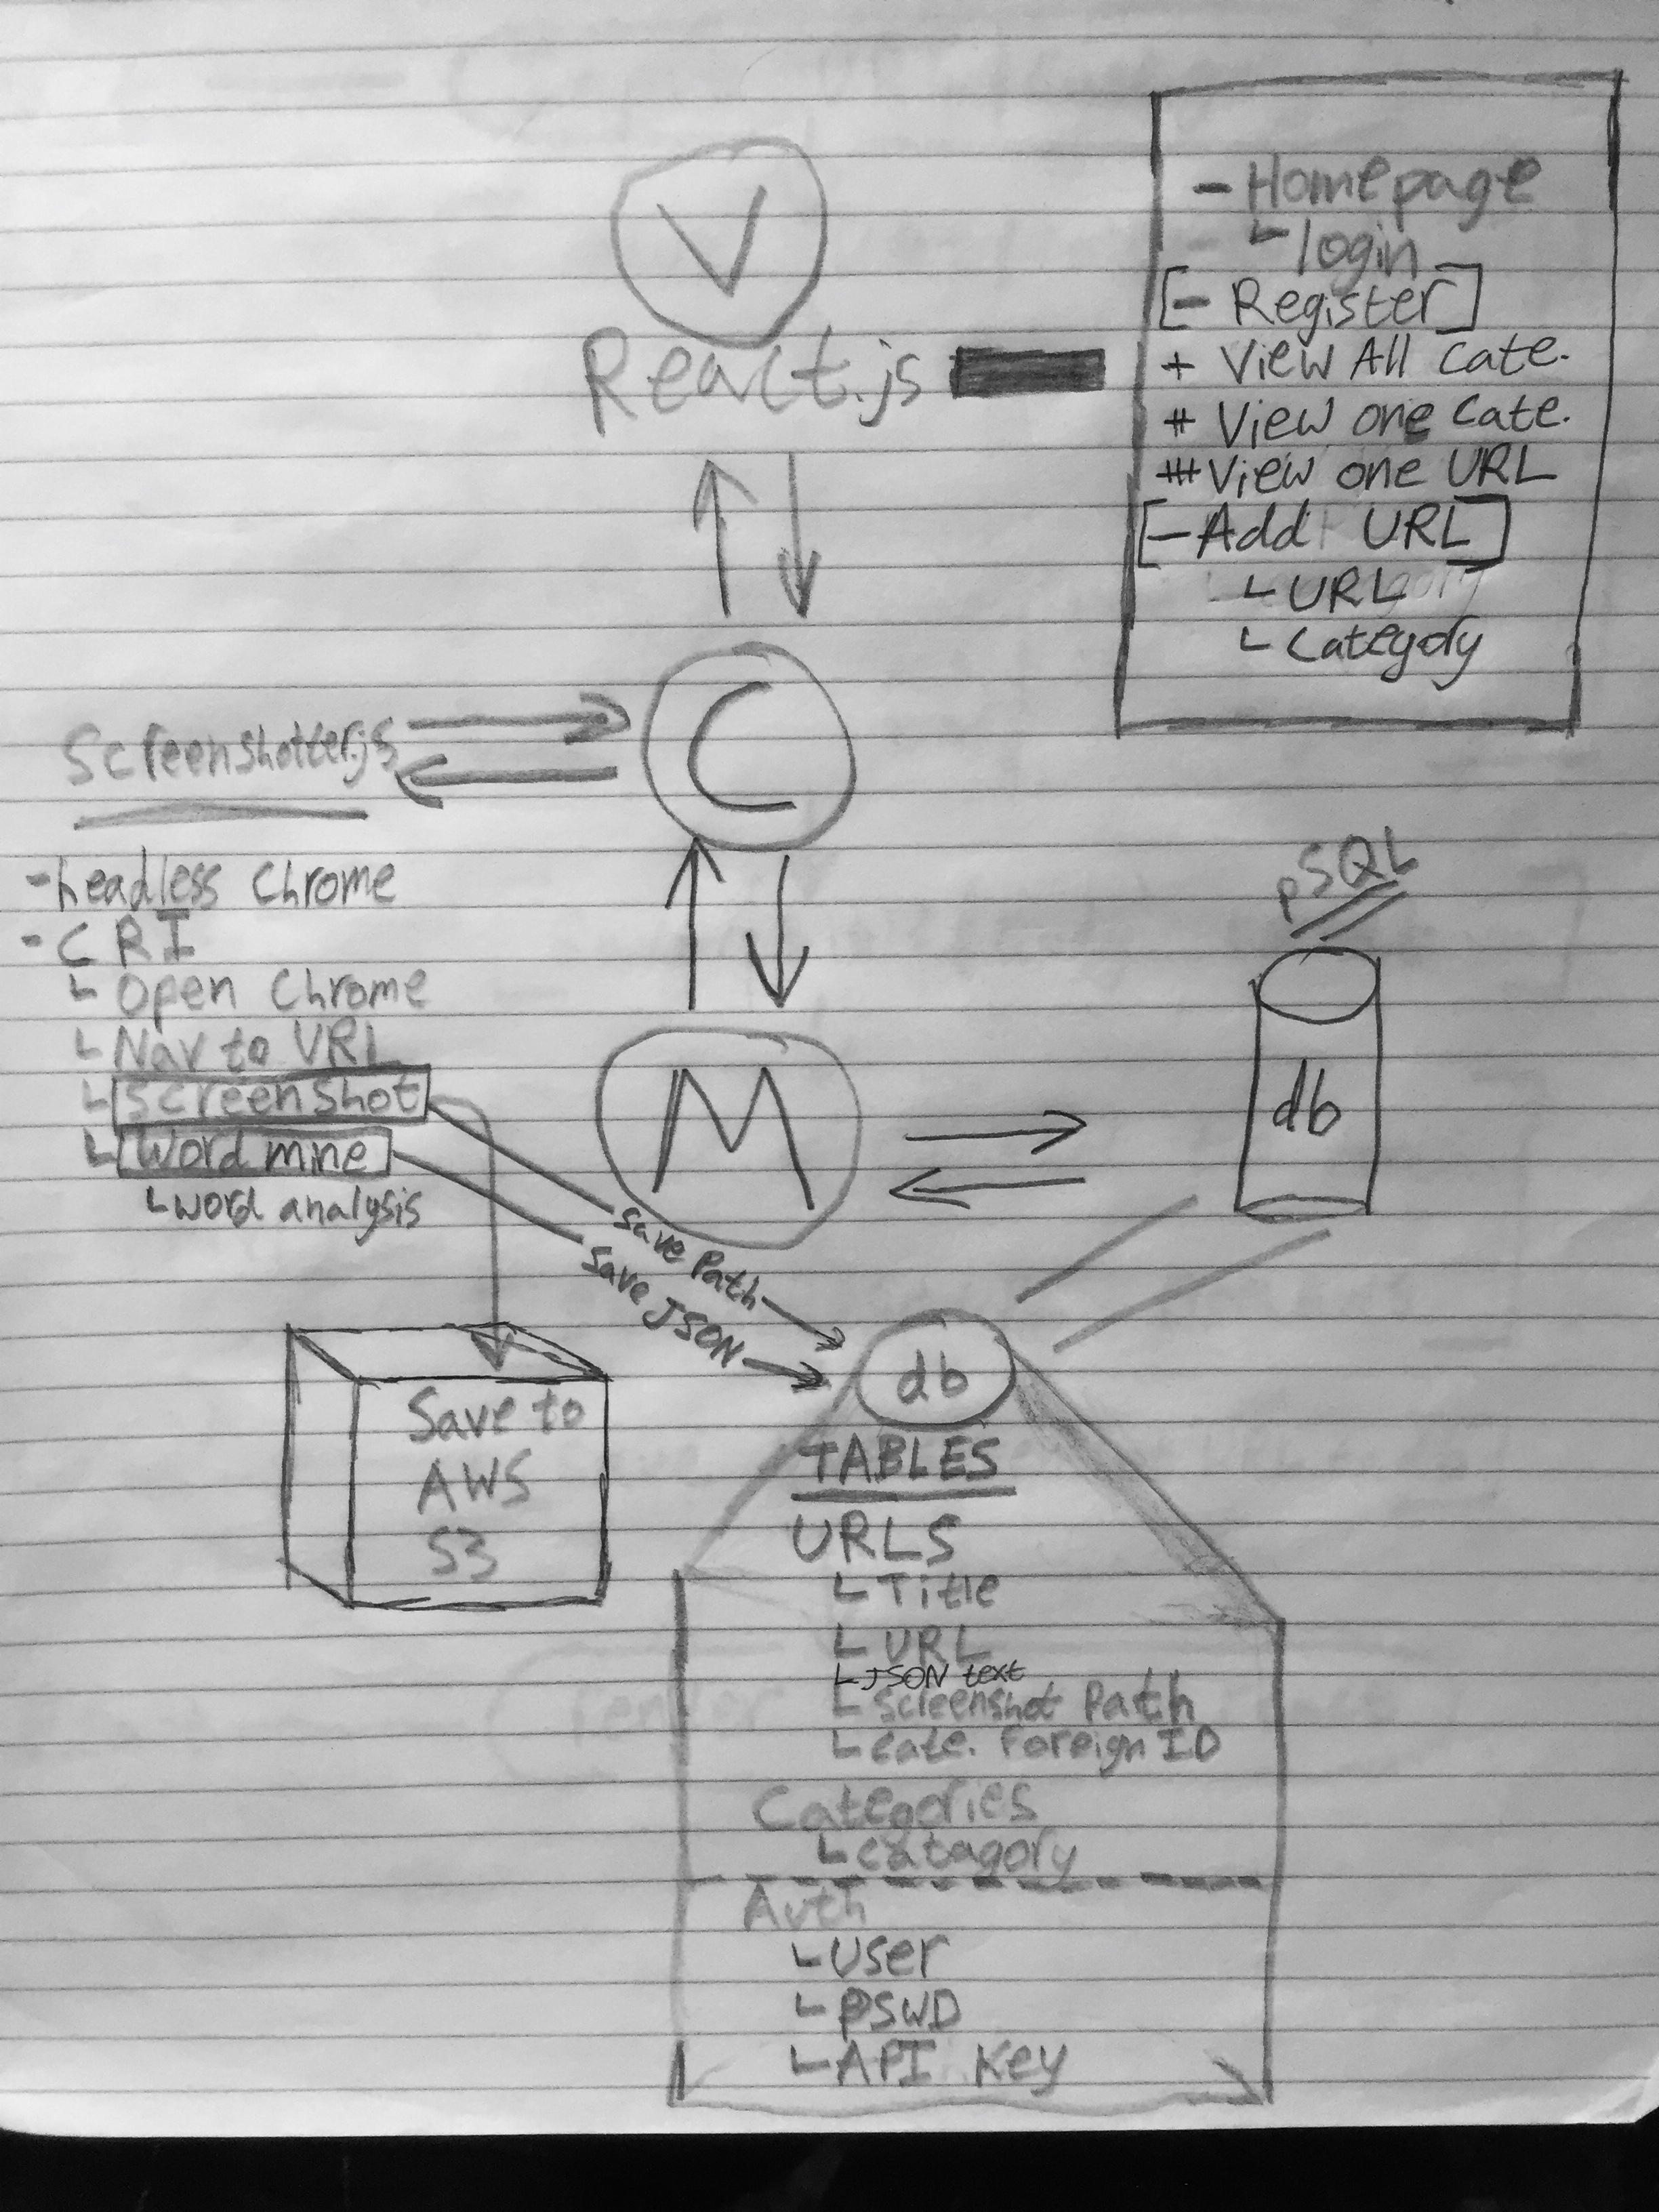 V
React.js
- Homepage
└ login
[- Register]
+ View All Cate.
# View one Cate.
## View one URL
[- Add URL]
└ URL
└ Category
C
Screenshotter.js
- headless Chrome
- CRI
└ Open Chrome
└ Nav to URL
└ Screenshot
└ Word mine
└ word analysis
M
pSQL
db
Save Path
Save JSON
Save to
AWS
S3
db
TABLES
URLS
└ Title
└ URL
└ JSON text
└ Screenshot Path
└ cate. Foreign ID
Categories
└ catagory
Auth
└ User
└ PSWD
└ API Key